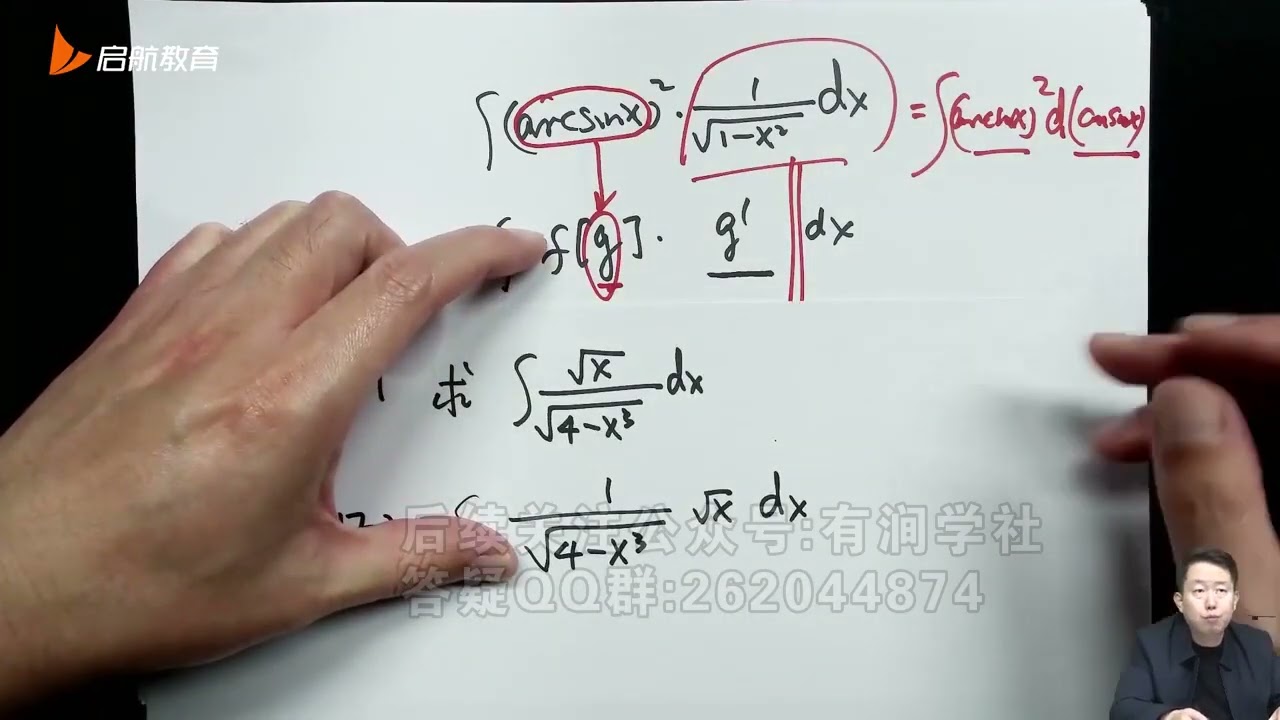 启航教育
∫(arcsinx)²·1/√(1-x²) dx = ∫(arcsinx)²d(arcsinx)
∫f[g]·g' dx
求 ∫√x/√(4-x³) dx
∫ 1/√(4-x³) √x dx
后续关注公众号:有润学社
答疑QQ群:262044874